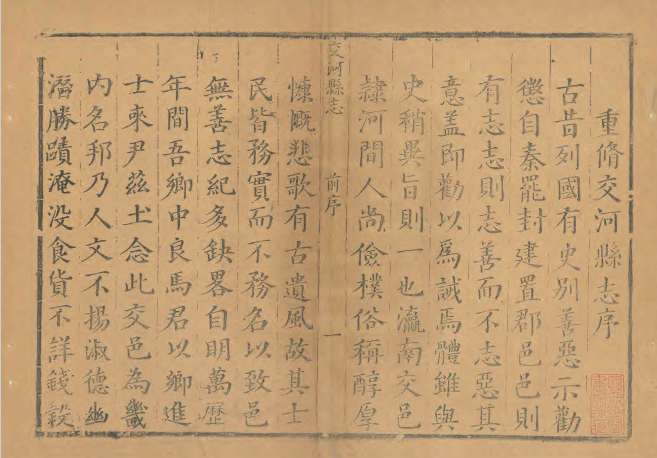 重脩交河縣志序
古昔列國有史别善惡示勸
懲自秦罷封建置郡邑邑則
有志志則志善而不志惡其
意盖即勸以爲誡焉體雖與
史稍異旨則一也瀛南交邑
隸河間人尚儉樸俗稱醇厚
交河縣志
前序
一
慷慨悲歌有古遺風故其士
民皆務實而不務名以致邑
無善志紀多缺畧自明萬歷
年間吾鄉中良馬君以鄉進
士來尹茲土念此交邑為畿
内名邦乃人文不揚淑德幽
潛勝蹟淹没食貨不詳錢穀